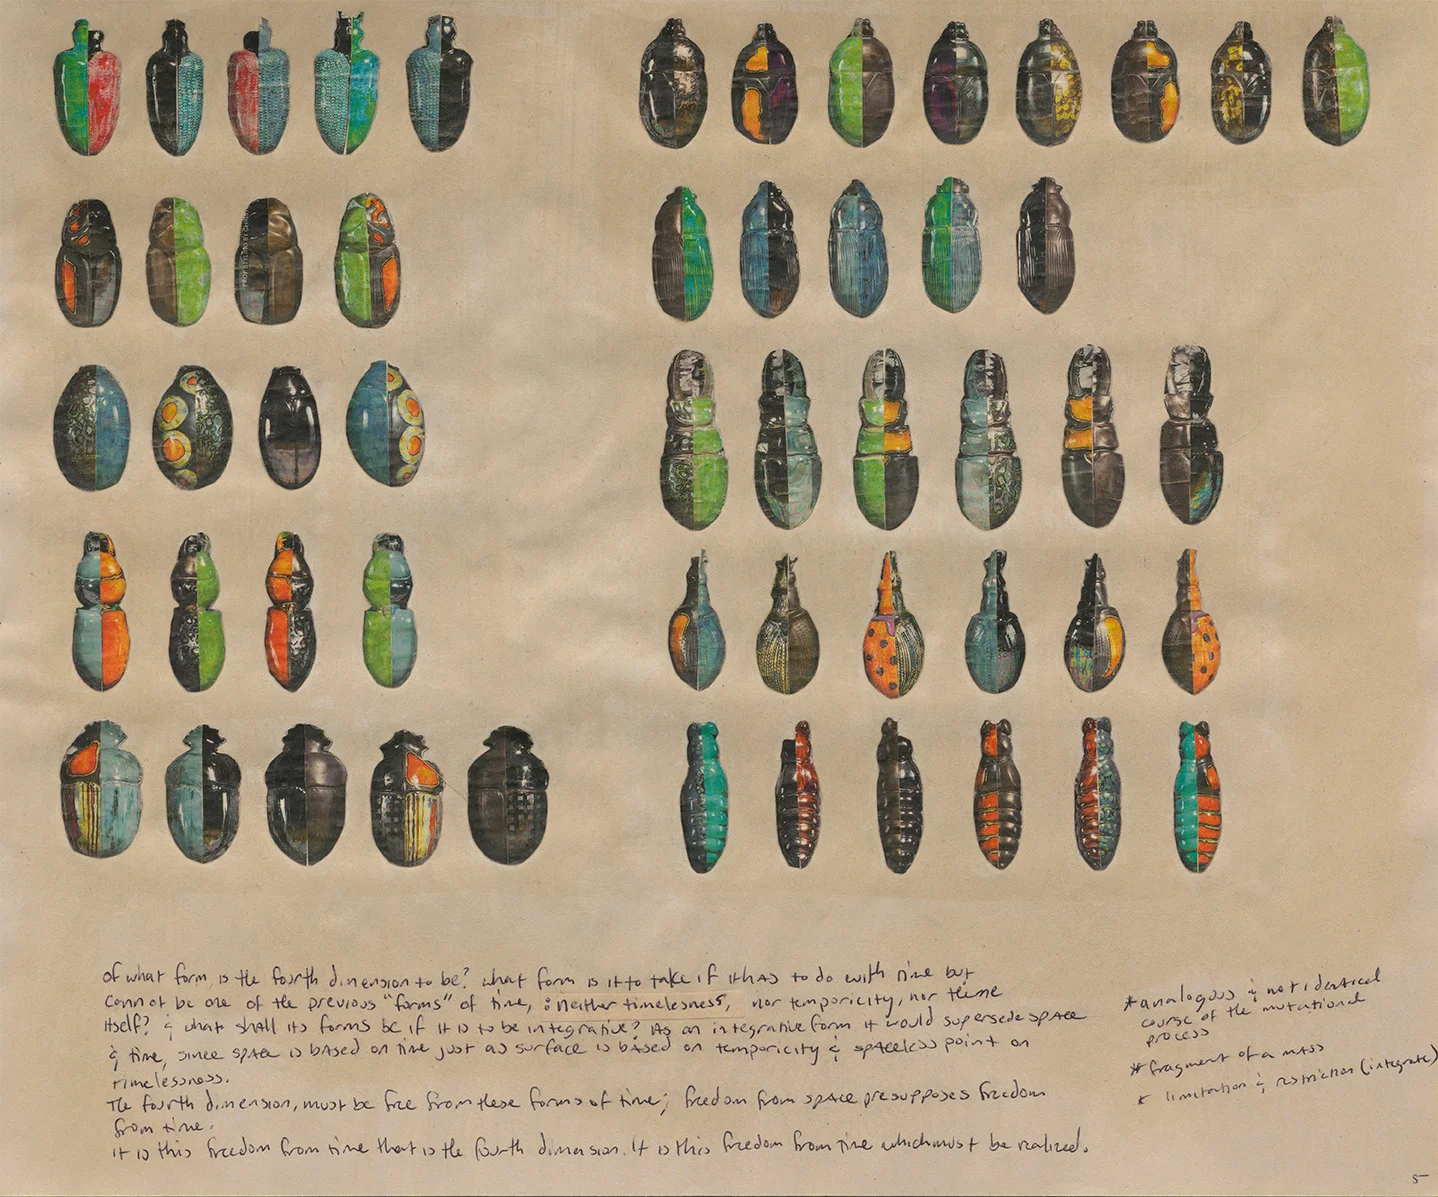 of what form, is the fourth dimension to be? what form is it to take if it has to do with time but
cannot be one of the previous "forms" of time, : neither timelesness, nor temporicity, nor time
itself? & what shall its forms be if it is to be integrative? As an integrative form it would supersede space
& time, since space is based on time just as surface is based on temporicity & spaceless point on
timelessness.
The fourth dimension, must be free from these forms of time; freedom from space presupposes freedom
from time.
it is this freedom from time that is the fourth dimension. It is this freedom from time which must be realized.
* analogous & not identical
course of the mutational
process
* fragment of a mass
* limitation & restriction (integrate)
5